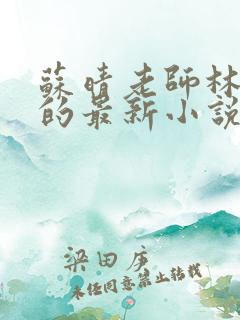 蘇晴老師林
的最新小說
梁田庄
未經同意禁止轉載